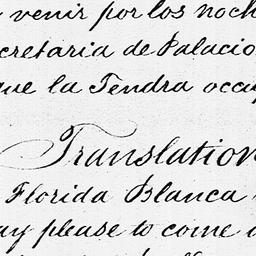 venir por los noch
cretaria de Palacio
que la Tendra occup
Translation
Florida Blanca
ay please to come a